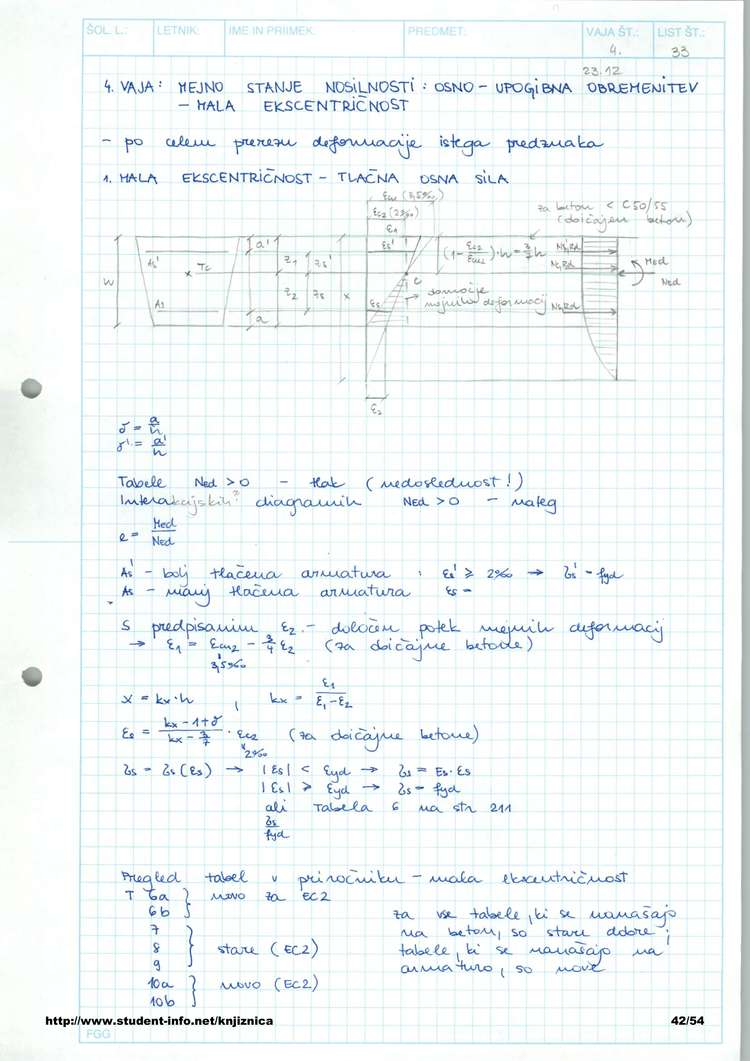 ŠOL. L.: LETNIK: IME IN PRIIMEK: PREDMET: VAJA ŠT.: LIST ŠT.:
4. 33
23.12
4. VAJA: MEJNO STANJE NOSILNOSTI: OSNO - UPOGIBNA OBREMENITEV
- MALA EKSCENTRIČNOST
- po celem prerezu deformacije istega predznaka
1. MALA EKSCENTRIČNOST - TLAČNA OSNA SILA
εcu2 (3,5‰)
εc2 (2‰)
ε1
εs'
za beton < C50/55
(običajen beton)
(1 - εc2/εcu2)·h = 3/7 h
h As' Tc As a' a z1 zs' z2 zs x εs C
območje
mejnih deformacij
Ns'Rd
NcRd
NsRd
MEd
NEd
ε2
δ = a/h
δ' = a'/h
Tabele NEd > 0 - tlak (nedoslednost!)
Interakcijskih? diagramih NEd > 0 - nateg
e = MEd/NEd
As' - bolj tlačena armatura : εs' ≥ 2‰ → σs' = fyd
As - manj tlačena armatura εs =
S predpisanim ε2 - določen potek mejnih deformacij
→ ε1 = εcu2 - 3/4 ε2 (za običajne betone)
3,5‰
x = kx·h , kx = ε1/(ε1-ε2)
εs = (kx - 1 + δ)/(kx - 3/7) · εc2 (za običajne betone)
2‰
σs = σs(εs) → |εs| < εyd → σs = Es·εs
|εs| ≥ εyd → σs = fyd
ali Tabela 6 na str 211
σs/fyd
Pregled tabel v priročniku - mala ekscentričnost
T 6a
6b } novo za EC2
7
8
9 } stare (EC2)
10a
10b } novo (EC2)
za vse tabele, ki se nanašajo
na beton, so stare dobre;
tabele, ki se nanašajo na
armaturo, so nove
http://www.student-info.net/knjiznica 42/54
FGG